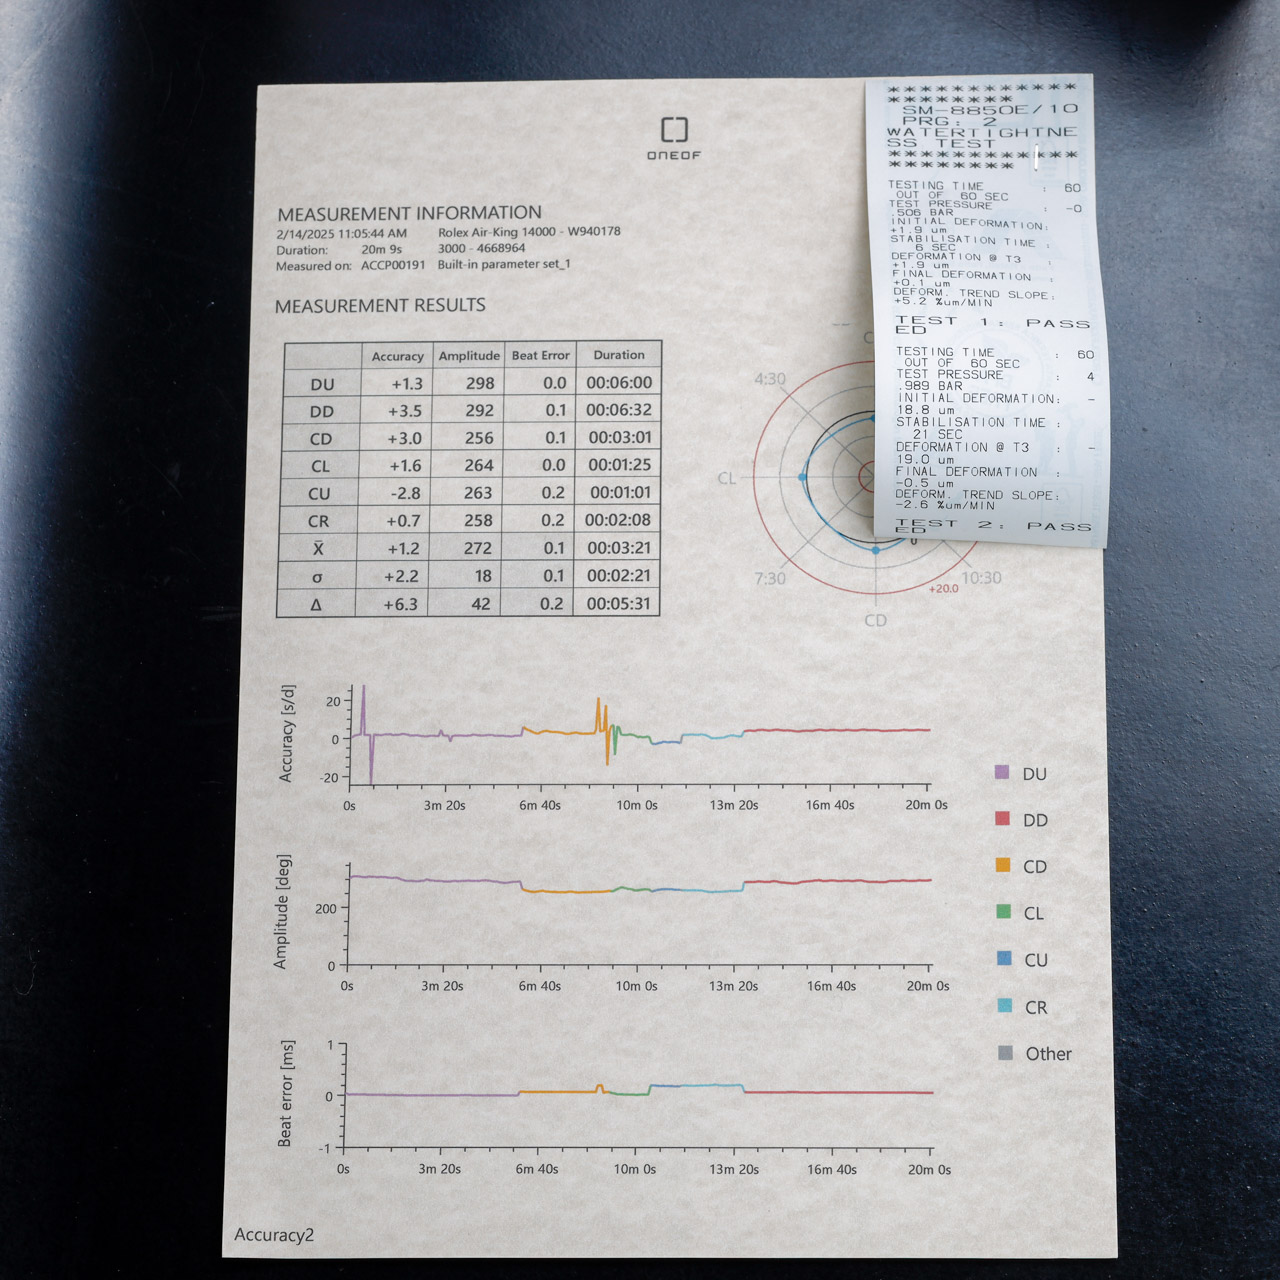 ONEOF
MEASUREMENT INFORMATION
2/14/2025 11:05:44 AM Rolex Air-King 14000 - W940178
Duration: 20m 9s 3000 - 4668964
Measured on: ACCP00191 Built-in parameter set_1
MEASUREMENT RESULTS
Accuracy Amplitude Beat Error Duration
DU +1.3 298 0.0 00:06:00
DD +3.5 292 0.1 00:06:32
CD +3.0 256 0.1 00:03:01
CL +1.6 264 0.0 00:01:25
CU -2.8 263 0.2 00:01:01
CR +0.7 258 0.2 00:02:08
X̄ +1.2 272 0.1 00:03:21
σ +2.2 18 0.1 00:02:21
Δ +6.3 42 0.2 00:05:31
***********
********
SM-8850E/10
PRG: 2
WATERTIGHTNE
SS TEST
***********
********
TESTING TIME : 60
OUT OF 60 SEC
TEST PRESSURE : -0
.506 BAR
INITIAL DEFORMATION:
+1.9 um
STABILISATION TIME :
6 SEC
DEFORMATION @ T3 :
+1.9 um
FINAL DEFORMATION :
+0.1 um
DEFORM. TREND SLOPE:
+5.2 %um/MIN
TEST 1: PASS
ED
TESTING TIME : 60
OUT OF 60 SEC
TEST PRESSURE : 4
.989 BAR
INITIAL DEFORMATION: -
18.8 um
STABILISATION TIME :
21 SEC
DEFORMATION @ T3 : -
19.0 um
FINAL DEFORMATION :
-0.5 um
DEFORM. TREND SLOPE:
-2.6 %um/MIN
TEST 2: PASS
ED
4:30
CL
7:30
10:30
+20.0
CD
Accuracy [s/d]
20
0
-20
0s 3m 20s 6m 40s 10m 0s 13m 20s 16m 40s 20m 0s
Amplitude [deg]
200
0
0s 3m 20s 6m 40s 10m 0s 13m 20s 16m 40s 20m 0s
Beat error [ms]
1
0
-1
0s 3m 20s 6m 40s 10m 0s 13m 20s 16m 40s 20m 0s
DU
DD
CD
CL
CU
CR
Other
Accuracy2